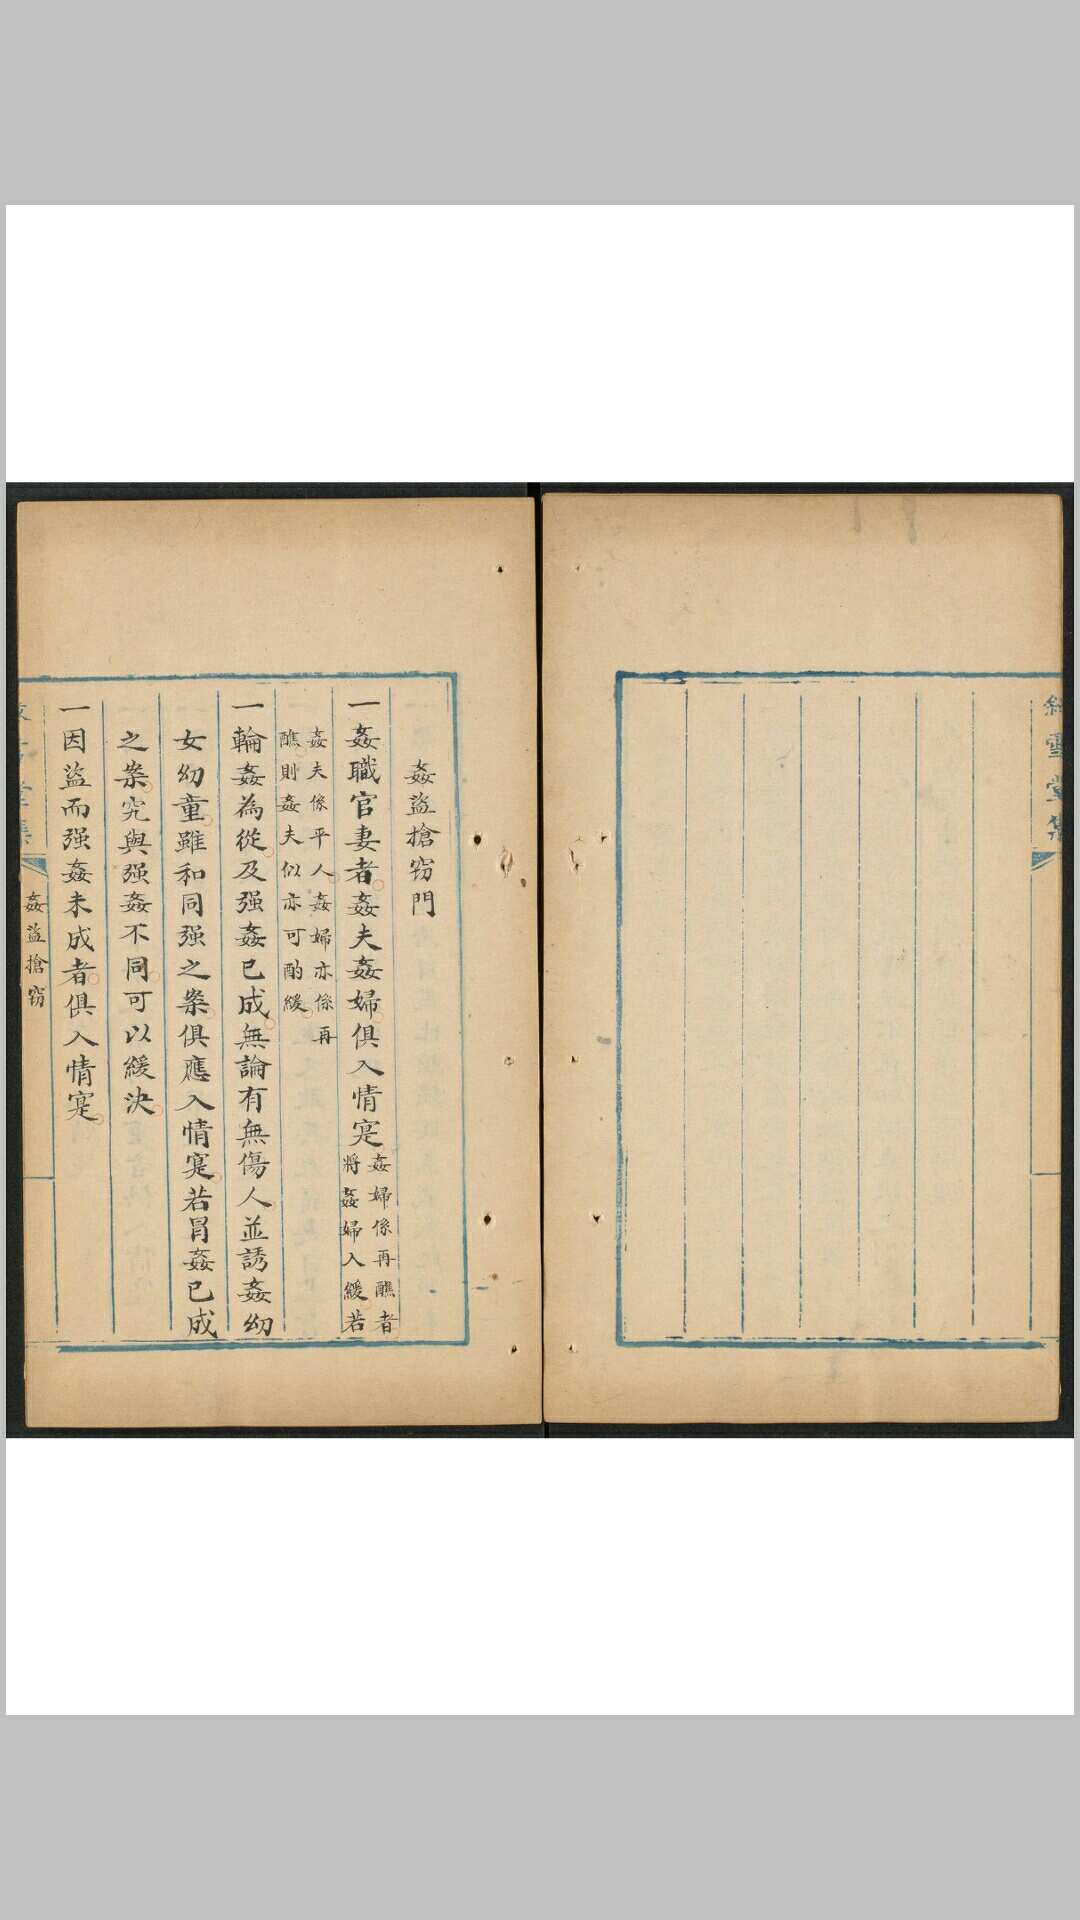 雪堂集
姦盜搶窃門
一姦職官妻者姦夫姦婦俱入情寔姦婦係再醮者
將姦婦入緩若
姦夫係平人姦婦亦係再
醮則姦夫似亦可酌緩
一輪姦為從及强姦已成無論有無傷人並誘姦幼
女幼童雖和同强之案俱應入情寔若冒姦已成
之案究與强姦不同可以緩決
一因盜而强姦未成者俱入情寔
姦盜搶窃